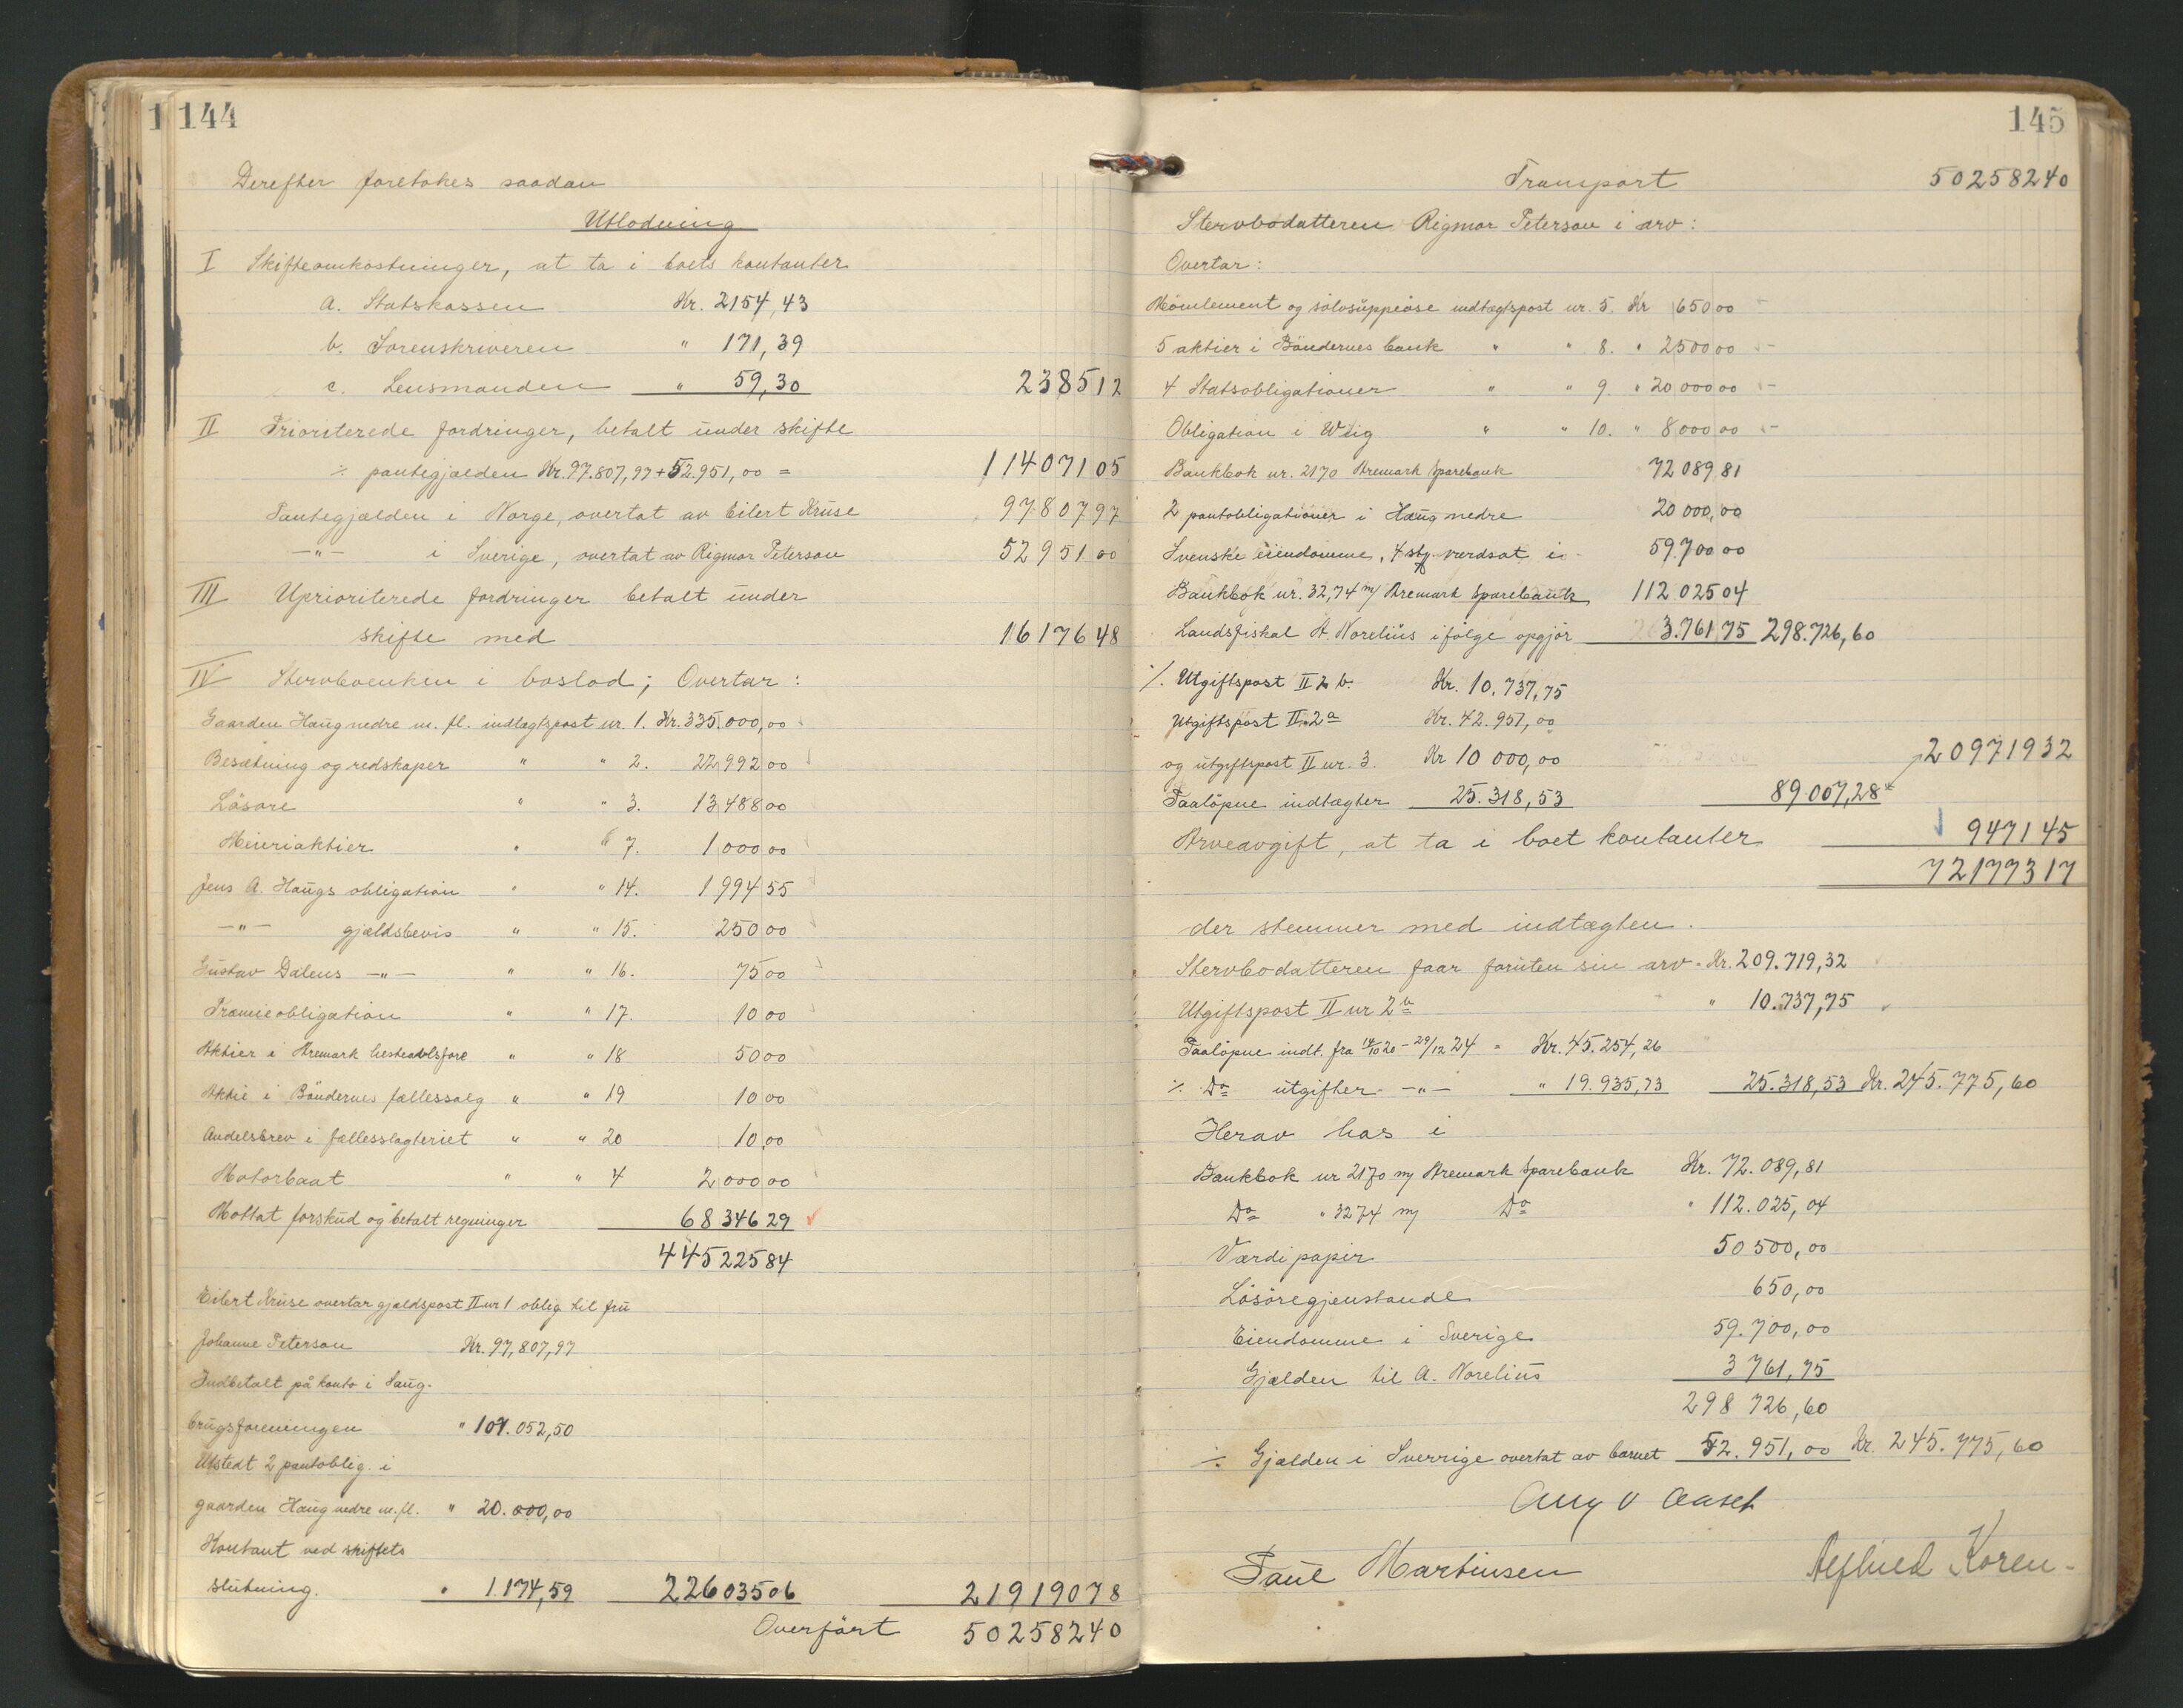 1 144
Derefter foretokes saadan
Utlodning
I Skifteomkostninger, at ta i boets kontanter
a. Statskassen Kr. 2154,43
b. Sorenskriveren " 171,39
c. Lensmanden " 59,30 2385 12
II Prioriterede fordringer, betalt under skifte
÷ pantegjælden Kr. 97.807,97 + 52.951,00 = 114071 05
Pantegjælden i Norge, overtat av Eilert Kruse 97807 97
—"— i Sverige, overtat av Rigmor Peterson 52951 00
III Uprioriterede fordringer betalt under
skifte med 16176 48
IV Stervboenken i boslod; Overtar:
Gaarden Haug nedre m. fl. indtægtspost nr. 1. Kr. 335.000,00
Besætning og redskaper " " 2. 22992 00
Løsøre " " 3. 13488 00
Meieriaktier " " 7. 1000 00
Jens A. Haugs obligation " " 14. 1994 55
—"— gjældsbevis " " 15. 250 00
Gustav Dalens —"— " " 16. 75 00
Præmieobligation " " 17. 10 00
Aktier i Aremark hesteavlsfore " " 18 50 00
Aktie i Bøndernes fællessalg " " 19 10 00
Andelsbrev i fællesslagteriet " " 20 10,00
Motorbaat " " 4 2000 00
Mottat forskud og betalt regninger 68346 29
445225 84
Eilert Kruse overtar gjældspost II nr 1 oblig. til fru
Johanne Peterson Kr. 97,807,97
Indbetalt på konto i Saug-
brugsforeningen " 107.052,50
Utstedt 2 pantoblig. i
gaarden Haug nedre m. fl. " 20.000,00
Kontant ved skiftets
slutning. " 1.174,59 226035 06 219190 78
Overført 502582 40
145
Transport 502582 40
Stervbodatteren Rigmor Peterson i arv:
Overtar:
Möwlement og sølvsuppeöse indtægtspost nr. 5. Kr 650 00
5 aktier i Bøndernes bank " " 8. " 2500 00
4 Statsobligationer " " 9. " 20000 00
Obligation i Wiig " " 10. " 8000 00
Bankbok nr. 2170 Aremark Sparebank 72089 81
2 pantobligationer i Haug nedre 20 000,00
Svenske eiendomme, 4 stk. værdsat i 59.700 00
Bankbok nr. 32,74 m/ Aremark Sparebank 112 025 04
Landsfiskal A. Norelius ifølge opgjør 3.761 75 298.726,60
÷ Utgiftspost II 2 b. Kr. 10.737,75
Utgiftspost II 2a Kr. 42.951,00
og utgiftspost II nr. 3. Kr 10 000,00 209719 32
Paaløpne indtægter 25.318,53 89.007,28
Arveavgift, at ta i boet kontanter 9471 45
721773 17
der stemmer med indtægten.
Stervbodatteren faar foruten sin arv = Kr. 209.719,32
Utgiftspost II nr 2b " 10.737,75
Paaløpne indt. fra 14/10 20 – 29/12 24 = Kr. 45.254,26
÷ Do utgifter —"— " 19.935,73 25.318,53 Kr. 245.775,60
Herav has i
Bankbok nr 2170 m/ Aremark Sparebank Kr. 72.089,81
Do " 3274 m/ Do " 112.025,04
Værdipapir 50 500,00
Løsøregjenstande 650,00
Eiendomme i Sverige 59.700,00
Gjælden til A. Norelius 3 761,75
298 726,60
÷ Gjælden i Sverrige overtat av barnet 52.951,00 Kr. 245.775,60
Paul Martinsen
Koren